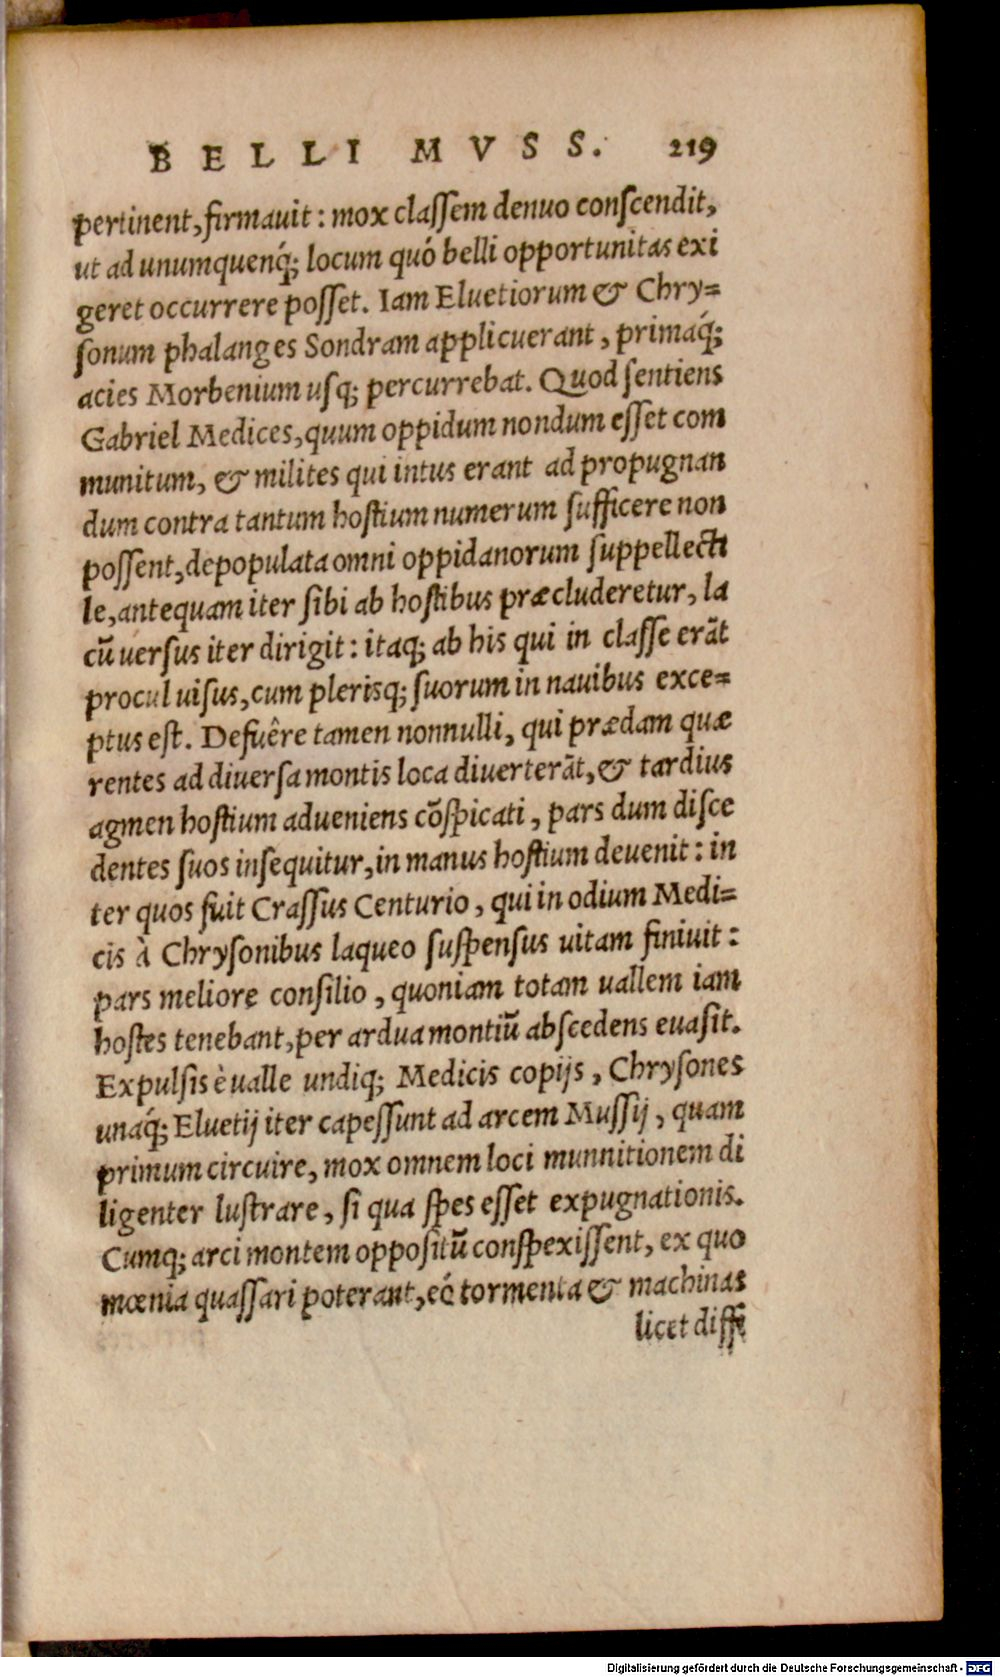 BELLI MVSS. 219
pertinent, firmauit: mox classem denuo conscendit,
ut ad unumquenq́; locum quó belli opportunitas exi
geret occurrere posset. Iam Eluetiorum & Chry=
sonum phalanges Sondram applicuerant, primaq́;
acies Morbenium usq; percurrebat. Quod sentiens
Gabriel Medices, quum oppidum nondum esset com
munitum, & milites qui intus erant ad propugnan
dum contra tantum hostium numerum sufficere non
possent, depopulata omni oppidanorum suppellecti
le, antequam iter sibi ab hostibus præcluderetur, la
cũ uersus iter dirigit: itaq; ab his qui in classe erãt
procul uisus, cum plerisq; suorum in nauibus exce=
ptus est. Defuêre tamen nonnulli, qui prædam quæ
rentes ad diuersa montis loca diuerterãt, & tardius
agmen hostium adueniens cõspicati, pars dum disce
dentes suos insequitur, in manus hostium deuenit: in
ter quos fuit Crassus Centurio, qui in odium Medi=
cis à Chrysonibus laqueo suspensus uitam finiuit:
pars meliore consilio, quoniam totam uallem iam
hostes tenebant, per ardua montiũ abscedens euasit.
Expulsis è ualle undiq; Medicis copijs, Chrysones
unáq; Eluetij iter capessunt ad arcem Mussij, quam
primum circuire, mox omnem loci munnitionem di
ligenter lustrare, si qua spes esset expugnationis.
Cumq; arci montem oppositũ conspexissent, ex quo
mœnia quassari poterant, eó tormenta & machinas
licet diffi
Digitalisierung gefördert durch die Deutsche Forschungsgemeinschaft - DFG